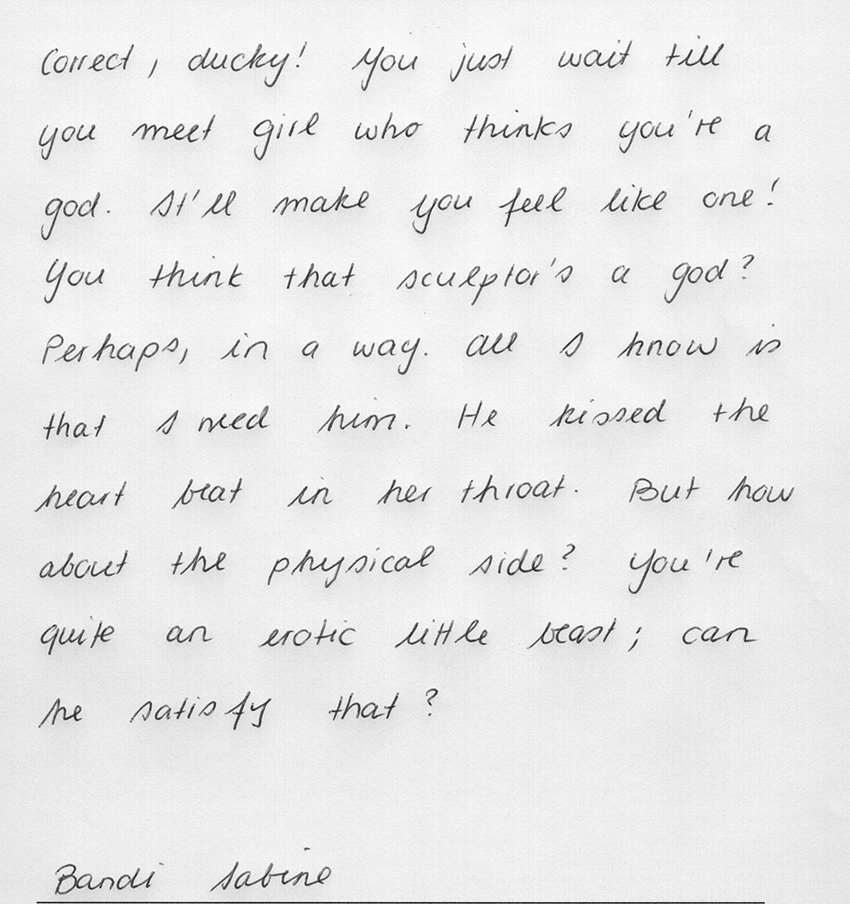 Correct, ducky! You just wait till
you meet girl who thinks you're a
god. It'll make you feel like one!
You think that sculptor's a god?
Perhaps, in a way. All I know is
that I need him. He kissed the
heart beat in her throat. But how
about the physical side? You're
quite an erotic little beast; can
he satisfy that?
Bandi Sabine